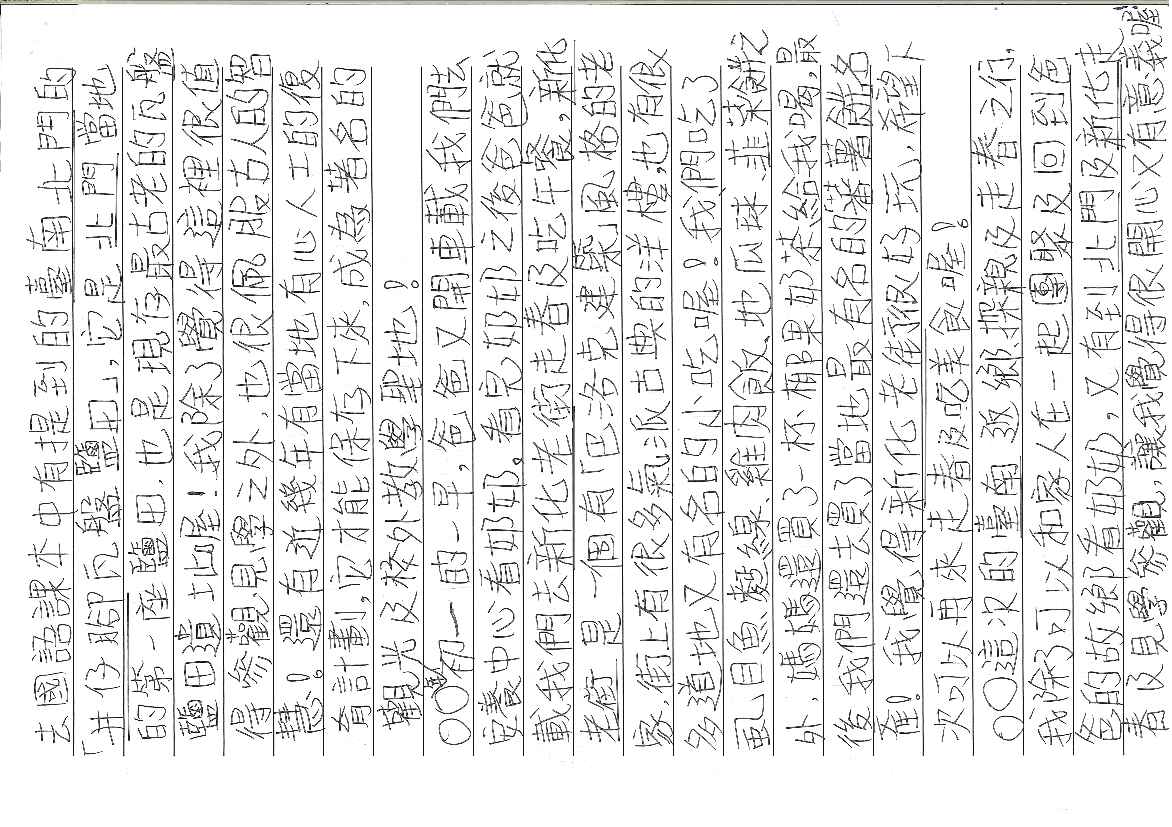 去國語課本中有提到的臺南北門的
「井仔腳瓦盤鹽田」,它是北門當地
的第一座鹽田,也是現存最古老的瓦盤
鹽田遺址喔!我除了覺得這裡很值
得參觀見學之外,也很佩服古人的智
慧!還有近幾年有當地有心人士的復
育計劃,它才能保存下來,成為著名的
觀光及校外教學聖地!
○○初一的一早,爸爸又開車載我們去
安養中心看奶奶。看完奶奶之後爸爸就
載我們去新化老街走春及吃午餐,新化
老街是一個有「巴洛克建築」風格的老
家,街上有很多氣派古典的洋樓,也有很
多道地又有名的小吃喔!我們吃了
虱目魚麵線、雞肉飯、地瓜球、韭菜
外,媽媽還買了一杯奶茶給我喝,最
後我們還去買了當地最有名的名
產!我覺得新化老街很好玩,希望下
次可以再來走春及吃美食喔!
○○這次的臺南返鄉探親及走春之行,
我除了可以和家人在一起團聚及回到爸
爸的故鄉看奶奶,又有到北門及新化走
春及見學參觀,讓我覺得很開心又有意義喔!